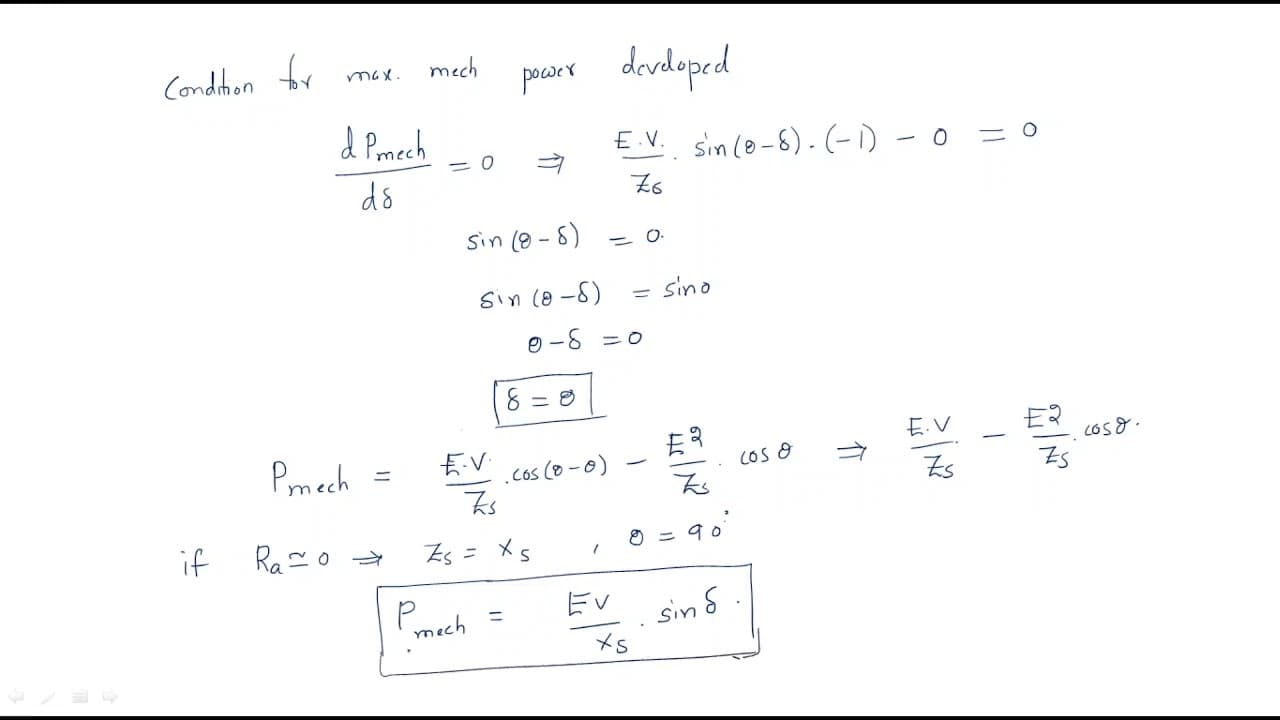 Condition for max. mech power developed
dPmech/dδ = 0 ⇒ E.V./Zs . sin(θ-δ).(-1) - 0 = 0
sin(θ-δ) = 0.
sin(θ-δ) = sin0
θ-δ = 0
δ = θ
Pmech = E.V./Zs .cos(θ-θ) - E²/Zs . cosθ ⇒ E.V/Zs - E²/Zs .cosθ.
if Ra≃0 ⇒ Zs = Xs , θ = 90°
Pmech = EV/Xs . sinδ.